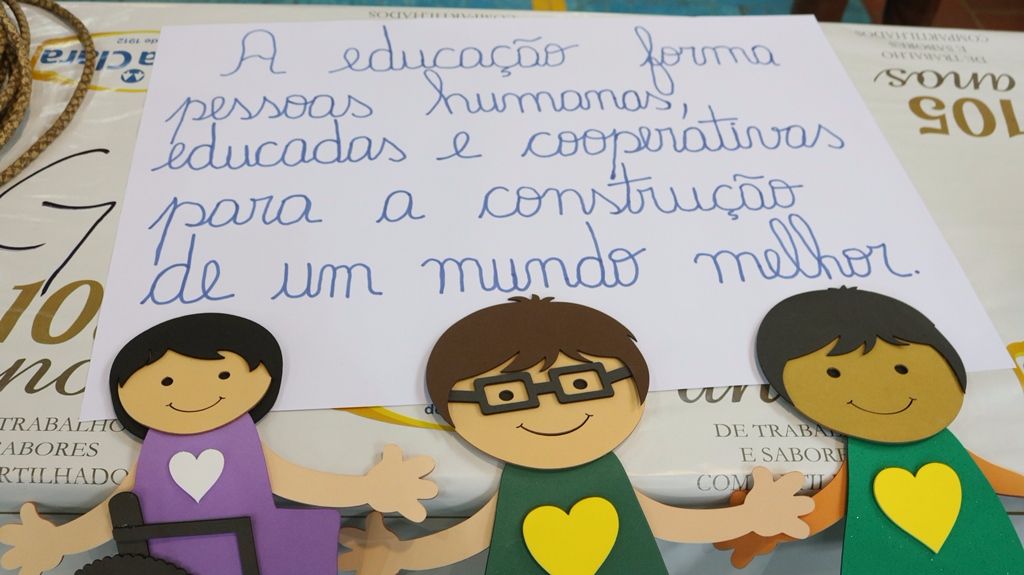 COMPARTILHADOS
A educação forma
pessoas humanas,
educadas e cooperativas
para a construção
de um mundo melhor.
a Clara
de 1912
COMPARTILHADOS
E SABORES
DE TRABALHO
anos
105
10
no
TRABALHO
SABORES
RTILHADO
DE TRABA
E SABORE
COM